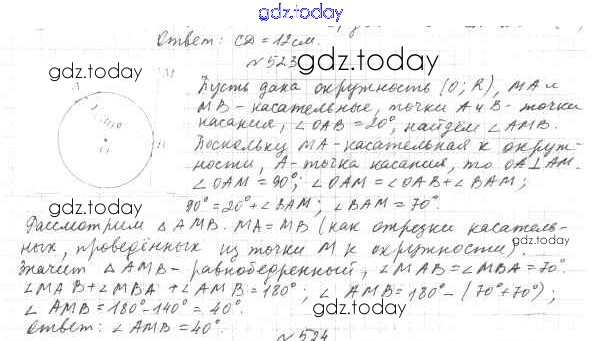 gdz.today
Ответ: CD = 12 см.
№ 523
gdz.today
M
A
B
O
Пусть дана окружность (O; R), MA и
MB - касательные, точки A и B - точки
касания, ∠OAB = 20°, найдём ∠AMB.
Поскольку MA - касательная к окруж-
ности, A - точка касания, то OA ⊥ AM.
∠OAM = 90°; ∠OAM = ∠OAB + ∠BAM;
90° = 20° + ∠BAM; ∠BAM = 70°.
gdz.today
Рассмотрим △ AMB. MA = MB (как отрезки касатель-
ных, проведённых из точки M к окружности).
gdz.today
Значит △ AMB - равнобедренный, ∠MAB = ∠MBA = 70°.
∠MAB + ∠MBA + ∠AMB = 180°; ∠AMB = 180° - (70° + 70°);
∠ AMB = 180° - 140° = 40°.
gdz.today
Ответ: ∠AMB = 40°.
№ 524